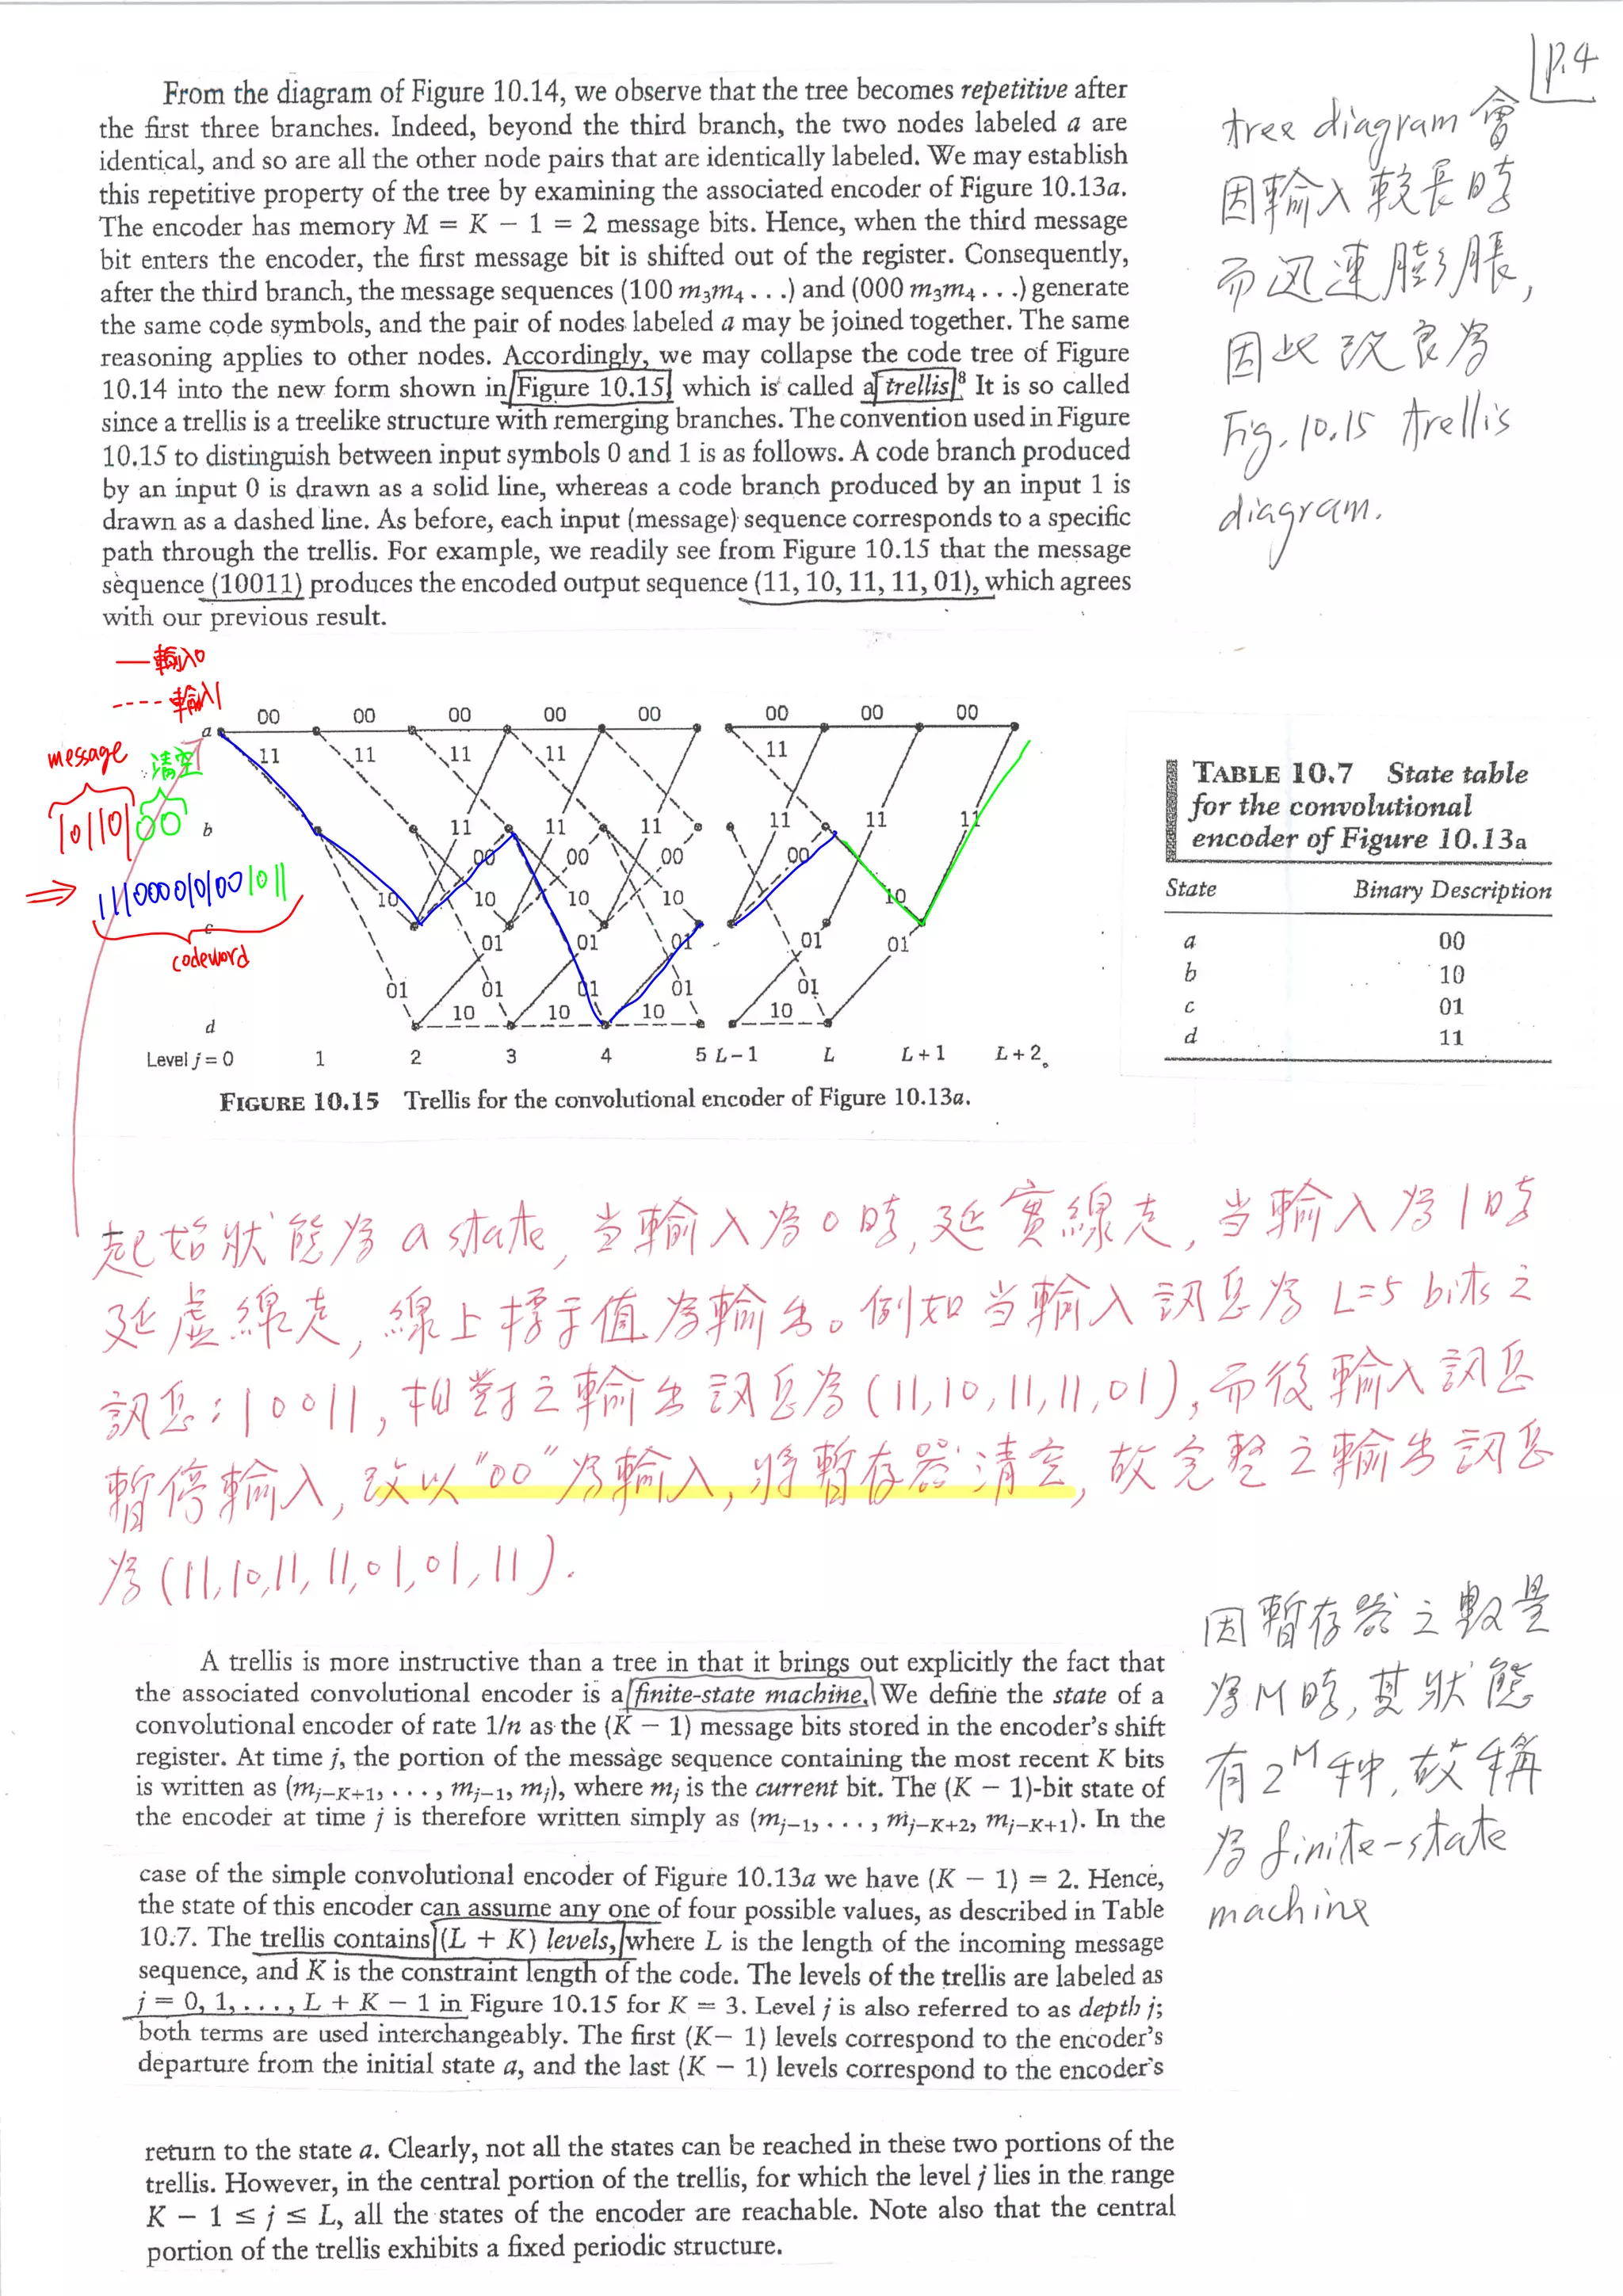 p.4
From the diagram of Figure 10.14, we observe that the tree becomes repetitive after
the first three branches. Indeed, beyond the third branch, the two nodes labeled a are
identical, and so are all the other node pairs that are identically labeled. We may establish
this repetitive property of the tree by examining the associated encoder of Figure 10.13a.
The encoder has memory M = K − 1 = 2 message bits. Hence, when the third message
bit enters the encoder, the first message bit is shifted out of the register. Consequently,
after the third branch, the message sequences (100 m₃m₄ . . .) and (000 m₃m₄ . . .) generate
the same code symbols, and the pair of nodes labeled a may be joined together. The same
reasoning applies to other nodes. Accordingly, we may collapse the code tree of Figure
10.14 into the new form shown in Figure 10.15, which is called a trellis.⁸ It is so called
since a trellis is a treelike structure with remerging branches. The convention used in Figure
10.15 to distinguish between input symbols 0 and 1 is as follows. A code branch produced
by an input 0 is drawn as a solid line, whereas a code branch produced by an input 1 is
drawn as a dashed line. As before, each input (message) sequence corresponds to a specific
path through the trellis. For example, we readily see from Figure 10.15 that the message
sequence (10011) produces the encoded output sequence (11, 10, 11, 11, 01), which agrees
with our previous result.
tree diagram 會
因輸入較長時
而迅速膨脹,
因此改良為
Fig. 10.15 trellis
diagram.
— 輸入0
---- 輸入1
message 清空
1011000
⇒ 11100001010010 11
codeword
00 00 00 00 00 00 00 00
a 11 11 11 11 11
b 11 11 11 11 11 11
00 00 00 00
10 10 10 10 10
c
01 01 01 01 01
01 01 01 01 01
10 10 10 10
d
Level j = 0 1 2 3 4 5 L−1 L L+1 L+2
FIGURE 10.15 Trellis for the convolutional encoder of Figure 10.13a.
TABLE 10.7 State table
for the convolutional
encoder of Figure 10.13a
State Binary Description
a 00
b 10
c 01
d 11
起始狀態為 a state, 當輸入為0時, 延實線走, 當輸入為1時
延虛線走, 線上標示值為輸出。例如當輸入訊息為 L=5 bits 之
訊息: 10011, 相對之輸出訊息為 (11,10,11,11,01), 而後輸入訊息
暫停輸入, 改以"00"為輸入, 將暫存器清空, 故完整之輸出訊息
為 (11,10,11,11,01,01,11).
A trellis is more instructive than a tree in that it brings out explicitly the fact that
the associated convolutional encoder is a finite-state machine. We define the state of a
convolutional encoder of rate 1/n as the (K − 1) message bits stored in the encoder's shift
register. At time j, the portion of the message sequence containing the most recent K bits
is written as (mⱼ₋K₊₁, . . . , mⱼ₋₁, mⱼ), where mⱼ is the current bit. The (K − 1)-bit state of
the encoder at time j is therefore written simply as (mⱼ₋₁, . . . , mⱼ₋K₊₂, mⱼ₋K₊₁). In the
case of the simple convolutional encoder of Figure 10.13a we have (K − 1) = 2. Hence,
the state of this encoder can assume any one of four possible values, as described in Table
10.7. The trellis contains (L + K) levels, where L is the length of the incoming message
sequence, and K is the constraint length of the code. The levels of the trellis are labeled as
j = 0, 1, . . . , L + K − 1 in Figure 10.15 for K = 3. Level j is also referred to as depth j;
both terms are used interchangeably. The first (K− 1) levels correspond to the encoder's
departure from the initial state a, and the last (K − 1) levels correspond to the encoder's
return to the state a. Clearly, not all the states can be reached in these two portions of the
trellis. However, in the central portion of the trellis, for which the level j lies in the range
K − 1 ≤ j ≤ L, all the states of the encoder are reachable. Note also that the central
portion of the trellis exhibits a fixed periodic structure.
因暫存器之數是
為M時, 其狀態
有2ᴹ種, 故稱
為 finite-state
machine